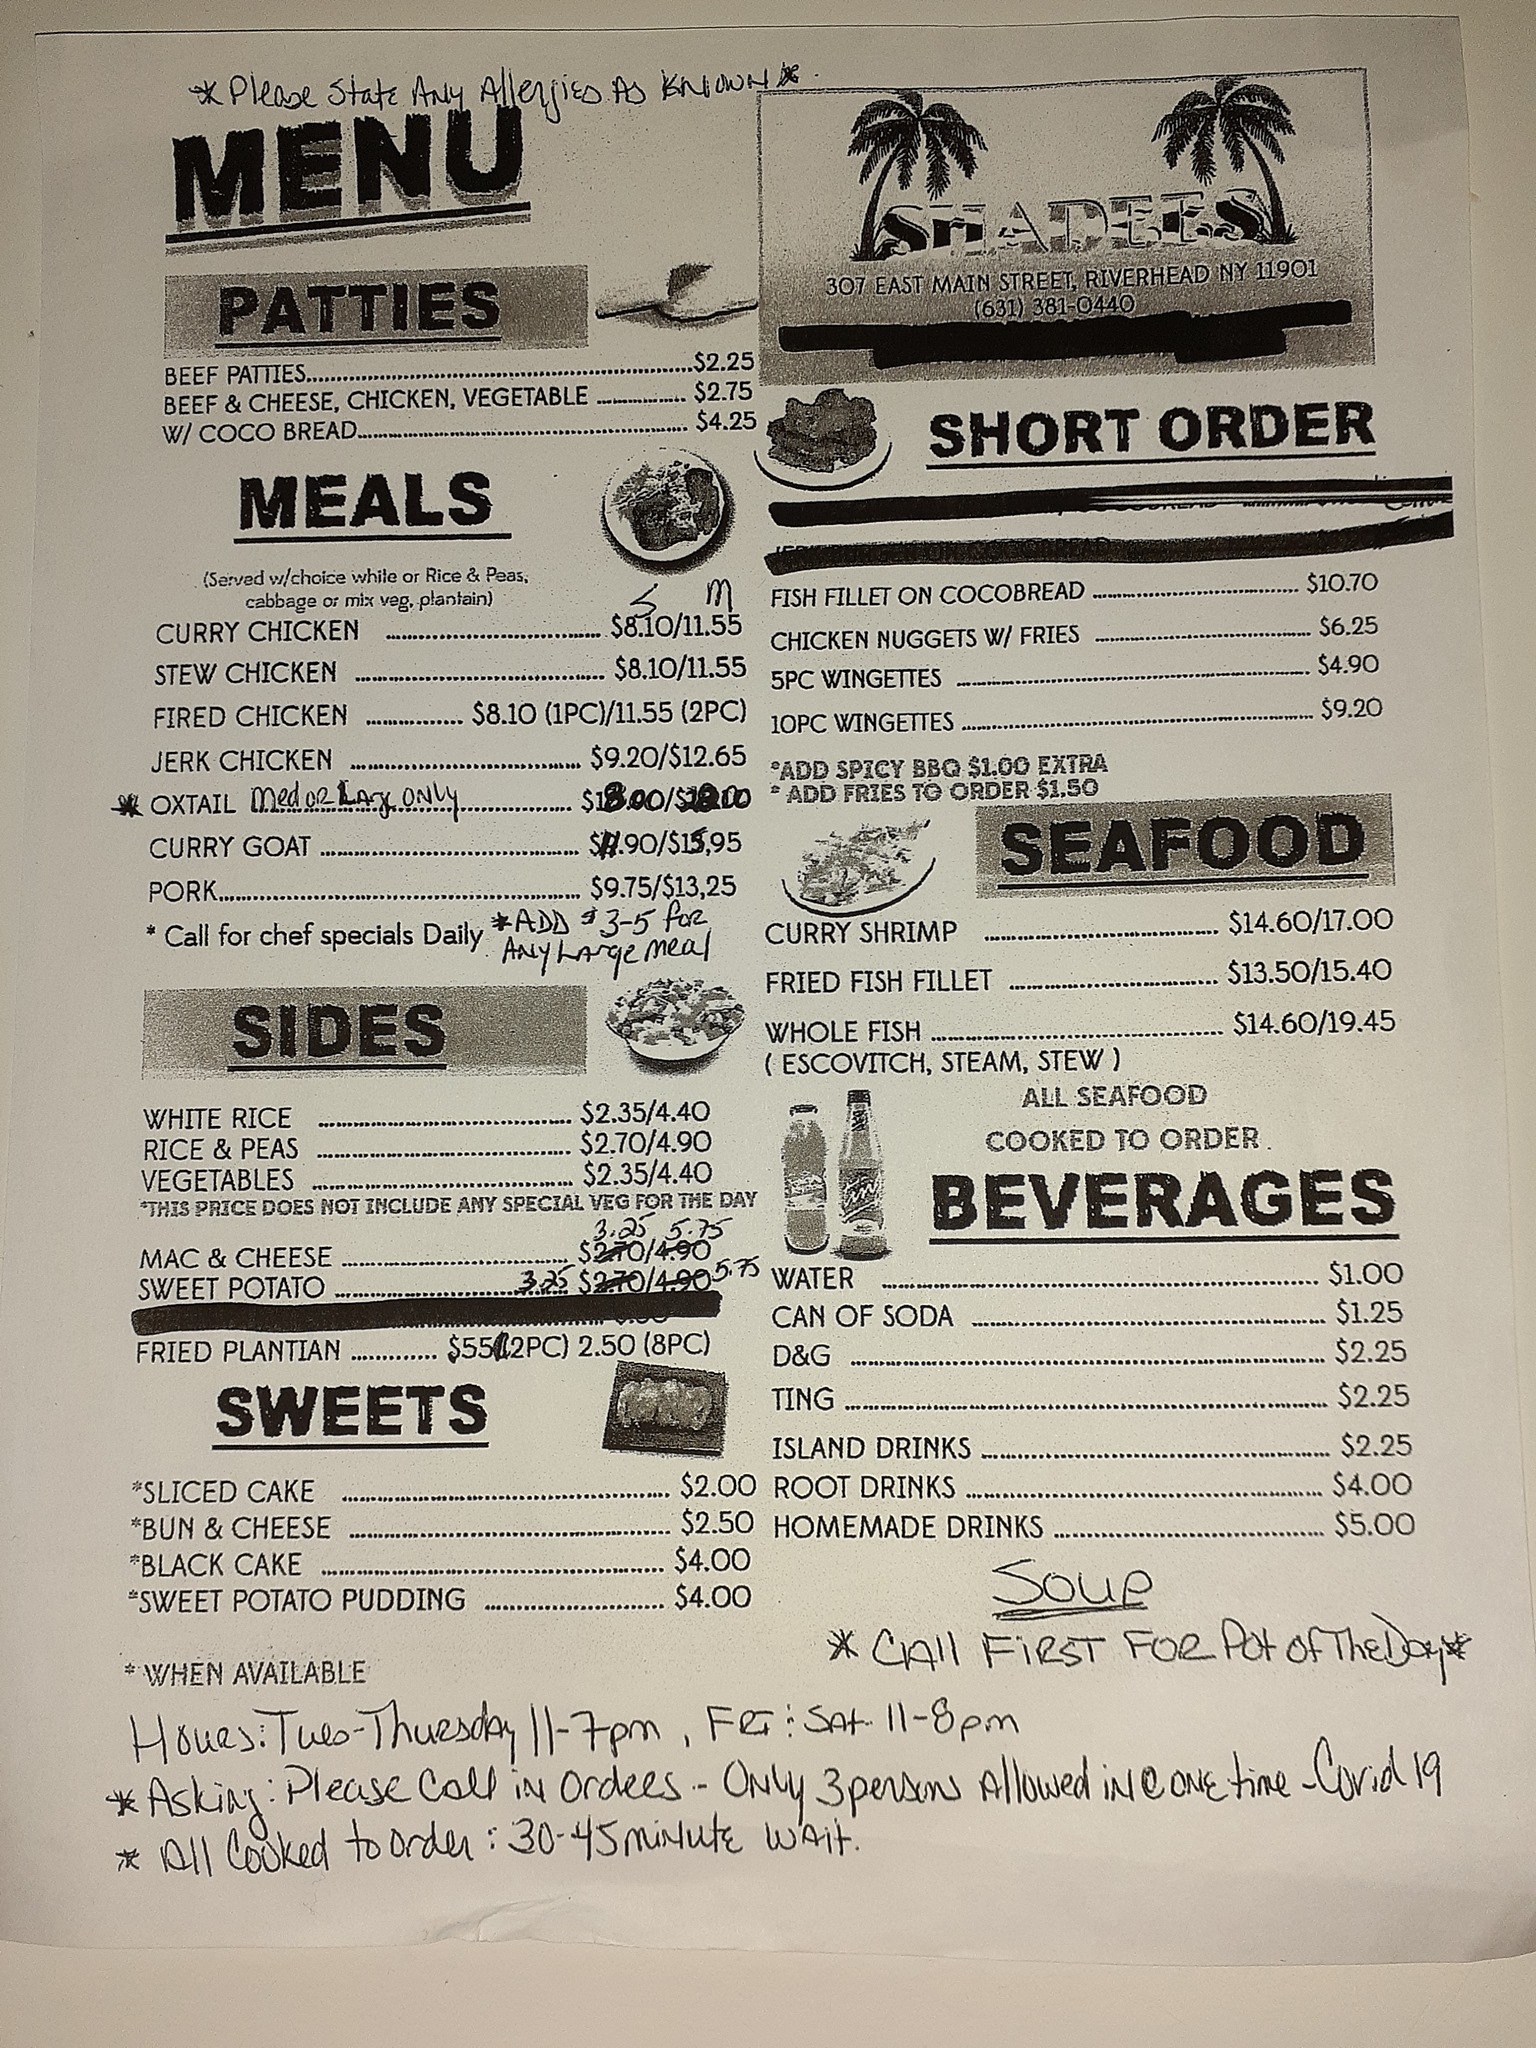 *Please State Any Allergies As Known*
MENU
PATTIES
BEEF PATTIES $2.25
BEEF & CHEESE, CHICKEN, VEGETABLE $2.75
W/ COCO BREAD $4.25
MEALS
(Served w/choice white or Rice & Peas,
cabbage or mix veg, plantain)
S M
CURRY CHICKEN $8.10/11.55
STEW CHICKEN $8.10/11.55
FIRED CHICKEN $8.10 (1PC)/11.55 (2PC)
JERK CHICKEN $9.20/$12.65
* OXTAIL Med or Larg only
CURRY GOAT $11.90/$15,95
PORK $9.75/$13,25
* Call for chef specials Daily
*ADD $3-5 for
Any Large meal
SIDES
WHITE RICE $2.35/4.40
RICE & PEAS $2.70/4.90
VEGETABLES $2.35/4.40
*THIS PRICE DOES NOT INCLUDE ANY SPECIAL VEG FOR THE DAY
3.25 5.75
MAC & CHEESE $2.70/4.90
SWEET POTATO 3.25 $2.70/4.90 5.75
FRIED PLANTIAN $.55 (2PC) 2.50 (8PC)
SWEETS
*SLICED CAKE $2.00
*BUN & CHEESE $2.50
*BLACK CAKE $4.00
*SWEET POTATO PUDDING $4.00
* WHEN AVAILABLE
SHADEES
307 EAST MAIN STREET, RIVERHEAD NY 11901
(631) 381-0440
SHORT ORDER
FISH FILLET ON COCOBREAD $10.70
CHICKEN NUGGETS W/ FRIES $6.25
5PC WINGETTES $4.90
10PC WINGETTES $9.20
*ADD SPICY BBQ $1.00 EXTRA
* ADD FRIES TO ORDER $1.50
SEAFOOD
CURRY SHRIMP $14.60/17.00
FRIED FISH FILLET $13.50/15.40
WHOLE FISH $14.60/19.45
( ESCOVITCH, STEAM, STEW )
ALL SEAFOOD
COOKED TO ORDER.
BEVERAGES
WATER $1.00
CAN OF SODA $1.25
D&G $2.25
TING $2.25
ISLAND DRINKS $2.25
ROOT DRINKS $4.00
HOMEMADE DRINKS $5.00
Soup
* Call First For Pot of The Day*
Hours: Tues-Thursday 11-7pm, Fri: Sat 11-8pm
* Asking: Please Call in Orders - Only 3 persons Allowed in @ one time - Covid 19
* All Cooked to order: 30-45 minute wait.